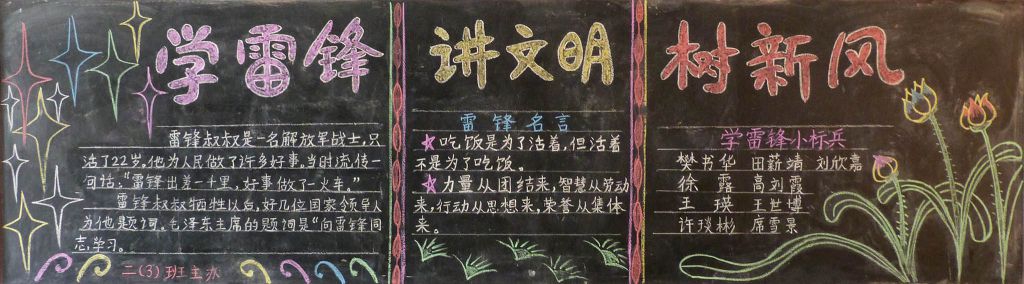 学雷锋
雷锋叔叔是一名解放军战士,只
活了22岁。他为人民做了许多好事。当时流传一
句话:“雷锋出差一千里,好事做了一火车。”
雷锋叔叔牺牲以后,好几位国家领导人
为他题词。毛泽东主席的题词是“向雷锋同
志学习。
二(3)班主办
讲文明
雷锋名言
吃饭是为了活着,但活着
不是为了吃饭。
力量从团结来,智慧从劳动
来,行动从思想来,荣誉从集体
来。
树新风
学雷锋小标兵
樊书华 田薪靖 刘欣嘉
徐露 高刘霞
王瑛 王世博
许琰彬 席雪景